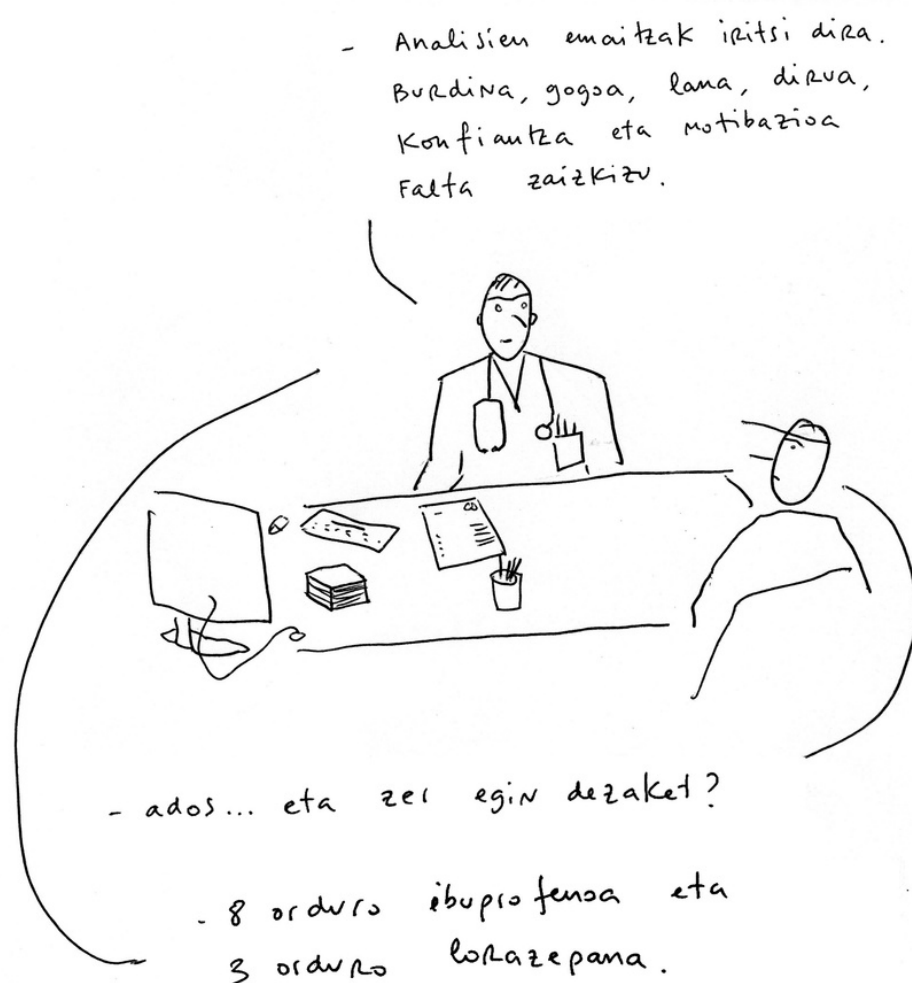 - Analisien emaitzak iritsi dira.
Burdina, gogoa, lana, dirua,
Konfiantza eta motibazioa
Falta zaizkizu.
- ados... eta zer egin dezaket?
- 8 orduro ibuprofenoa eta
3 orduro lorazepana.